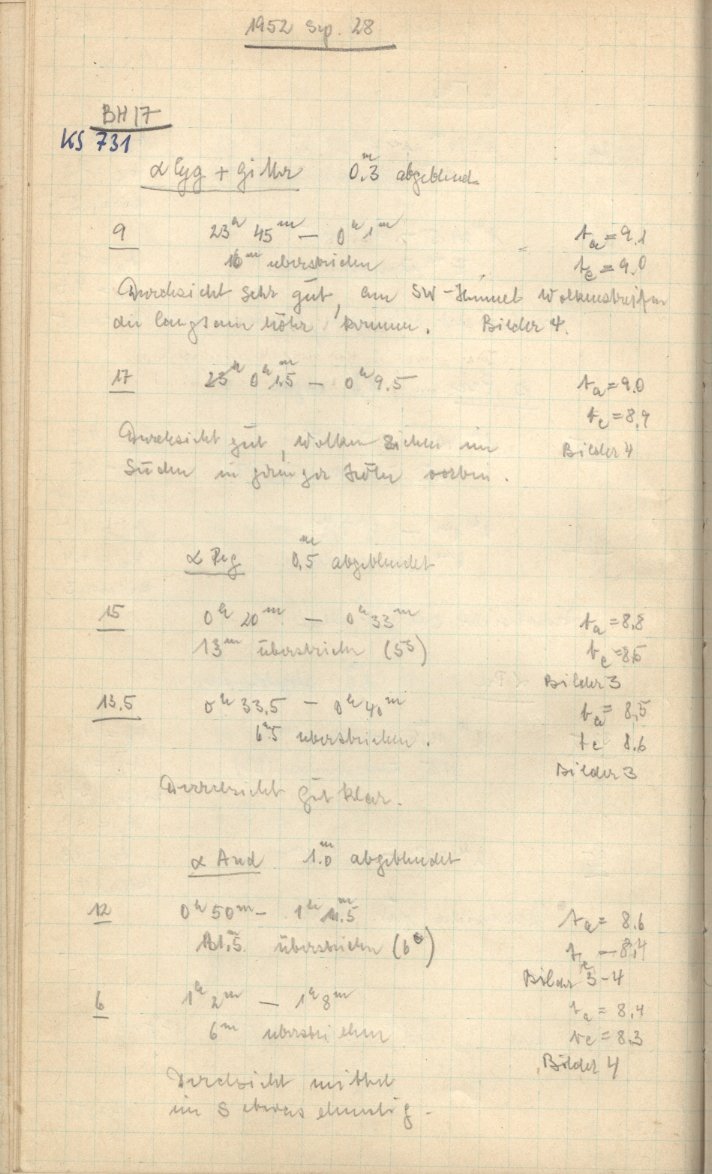 1952 Sep. 28
BH 17
KS 731
α Cyg + Gitter 0,3ᵐ abgeblend.
9 23ʰ 45ᵐ — 0ʰ 1ᵐ tₐ = 9.1
16ᵐ überstrichen tₑ = 9.0
Durchsicht sehr gut, am SW-Himmel Wolkenstreifen
die langsam höher kommen. Bilder 4.
17 0ʰ 1.5ᵐ — 0ʰ 9.5 tₐ = 9.0
tₑ = 8,9
Durchsicht gut, Wolken ziehen im Bilder 4
Süden in geringer Höhe vorbei.
α Peg 0,5ᵐ abgeblendet
15 0ʰ 20ᵐ — 0ʰ 33ᵐ tₐ = 8,8
13ᵐ überstrichen (5ˢ) tₑ = 8,5
Bilder 3
13.5 0ʰ 33,5 — 0ʰ 40ᵐ tₐ = 8,5
6ᵐ5 überstrichen. tₑ 8.6
Bilder 3
Durchsicht gut klar.
α And 1.0ᵐ abgeblendet
12 0ʰ 50ᵐ — 1ʰ 1.5ᵐ tₐ = 8.6
11.5 überstrichen (6ˢ) tₑ = 8,4
Bilder 3-4
6 1ʰ 2ᵐ — 1ʰ 8ᵐ tₐ = 8,4
6ᵐ überstrichen tₑ = 8.3
Bilder 4
Durchsicht mittel
im S etwas dunstig.